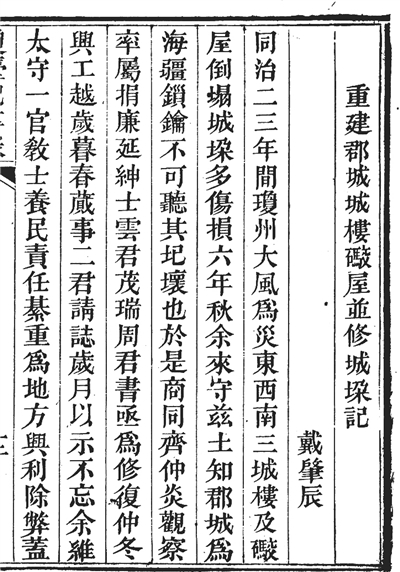 重建郡城城樓礮屋並修城垜記
戴肇辰
同治二三年間瓊州大風爲災東西南三城樓及礮
屋倒塌城垜多傷損六年秋余來守茲土知郡城爲
海疆鎖鑰不可聽其圮壞也於是商同齊仲炎觀察
率屬捐廉延紳士雲君茂瑞周君書亟爲修復仲冬
興工越歲暮春蕆事二君請誌歲月以示不忘余維
太守一官敎士養民責任綦重爲地方興利除弊蓋